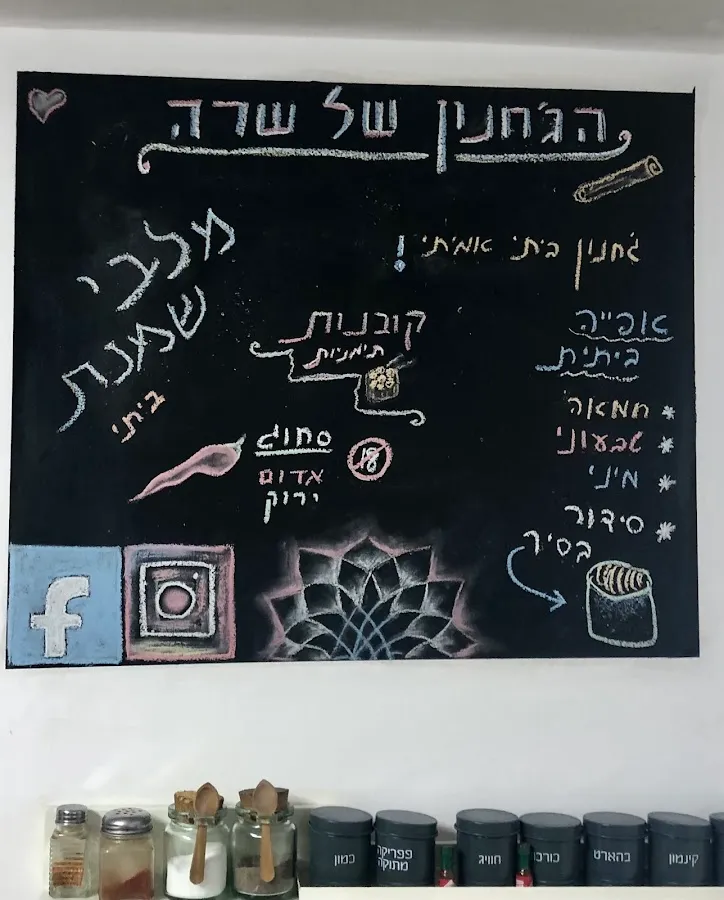 הג'חנון של שרה
ג'חנון ביתי אמיתי!
אפייה
ביתית
* חמאה
* טבעוני
* מיני
* סידור
בסיר
קובנות
תימניות
סחוג
אדום
ירוק
18
מלבי
שמנת
ביתי
f
כמון
פפריקה
מתוקה
חוויג
כורכו
בהארט
קינמון